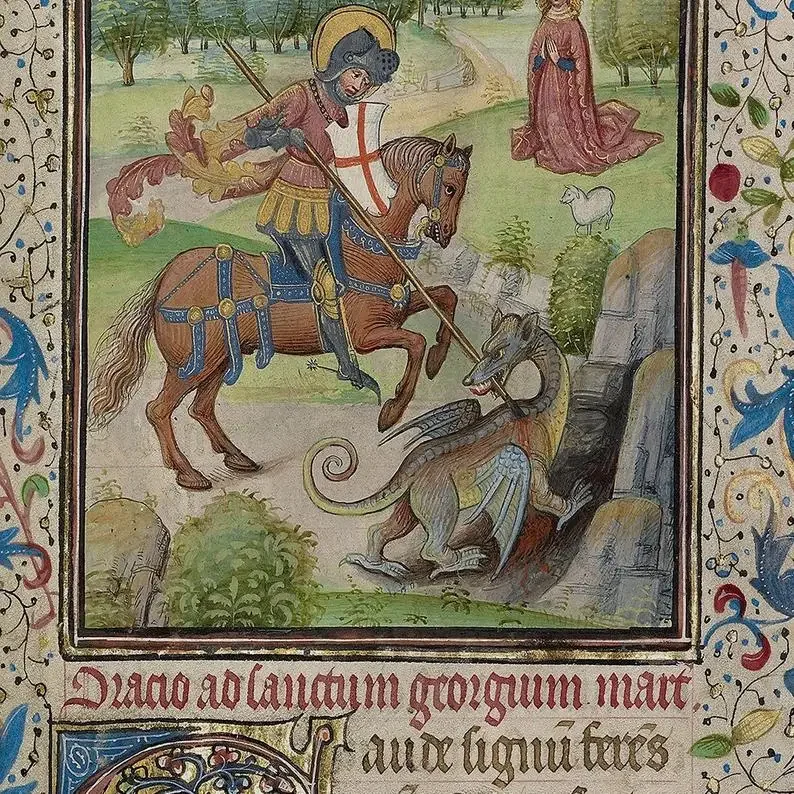 Oracio ad sanctum georgium mart.
aude signū ferēs